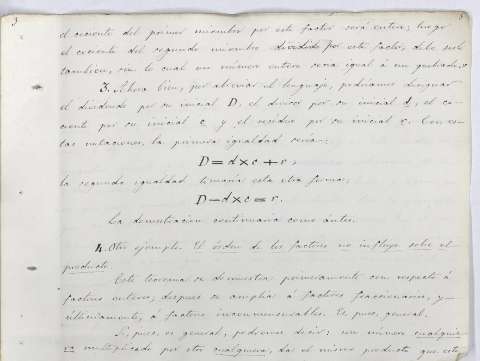 3
el cociente del primer miembro por este factor será entero; luego
el cociente del segundo miembro dividido por este factor, debe serlo
tambien, sin lo cual un número entero sería igual á un quebrado.
3. Ahora bien, por abreviar el lenguaje, podríamos designar
el dividendo por su inicial D, el divisor por su inicial d, el co-
ciente por su inicial c y el residuo por su inicial r. Con es-
tas notaciones, la primera igualdad sería:
D = d x c + r,
la segunda igualdad tomaría esta otra forma;
D - d x c = r.
La demostración continuaría como ántes.
4. Otro ejemplo. El órden de los factores no influye sobre el
producto.
Este teorema se demuestra primeramente con respecto á
factores enteros; despues se amplía á factores fraccionarios, y
últimamente, á factores inconmensurables. Es, pues, general.
Si, pues, es general, podremos decir: un número cualquie-
ra multiplicado por otro cualquiera, da el mismo producto que este